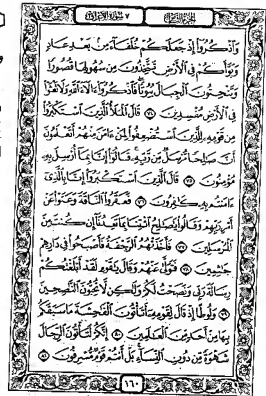 الجزء الثامن ٧ سورة الأعراف
وَٱذْكُرُوٓا۟ إِذْ جَعَلَكُمْ خُلَفَآءَ مِنۢ بَعْدِ عَادٍ
وَبَوَّأَكُمْ فِى ٱلْأَرْضِ تَتَّخِذُونَ مِن سُهُولِهَا قُصُورًا
وَتَنْحِتُونَ ٱلْجِبَالَ بُيُوتًا فَٱذْكُرُوٓا۟ ءَالَآءَ ٱللَّهِ وَلَا تَعْثَوْا۟
فِى ٱلْأَرْضِ مُفْسِدِينَ ٧٤ قَالَ ٱلْمَلَأُ ٱلَّذِينَ ٱسْتَكْبَرُوا۟
مِن قَوْمِهِۦ لِلَّذِينَ ٱسْتُضْعِفُوا۟ لِمَنْ ءَامَنَ مِنْهُمْ أَتَعْلَمُونَ
أَنَّ صَٰلِحًا مُّرْسَلٌ مِّن رَّبِّهِۦ قَالُوٓا۟ إِنَّا بِمَآ أُرْسِلَ بِهِۦ
مُؤْمِنُونَ ٧٥ قَالَ ٱلَّذِينَ ٱسْتَكْبَرُوٓا۟ إِنَّا بِٱلَّذِىٓ
ءَامَنتُم بِهِۦ كَٰفِرُونَ ٧٦ فَعَقَرُوا۟ ٱلنَّاقَةَ وَعَتَوْا۟ عَنْ
أَمْرِ رَبِّهِمْ وَقَالُوا۟ يَٰصَٰلِحُ ٱئْتِنَا بِمَا تَعِدُنَآ إِن كُنتَ مِنَ
ٱلْمُرْسَلِينَ ٧٧ فَأَخَذَتْهُمُ ٱلرَّجْفَةُ فَأَصْبَحُوا۟ فِى دَارِهِمْ
جَٰثِمِينَ ٧٨ فَتَوَلَّىٰ عَنْهُمْ وَقَالَ يَٰقَوْمِ لَقَدْ أَبْلَغْتُكُمْ
رِسَالَةَ رَبِّى وَنَصَحْتُ لَكُمْ وَلَٰكِن لَّا تُحِبُّونَ ٱلنَّٰصِحِينَ
٧٩ وَلُوطًا إِذْ قَالَ لِقَوْمِهِۦٓ أَتَأْتُونَ ٱلْفَٰحِشَةَ مَا سَبَقَكُم
بِهَا مِنْ أَحَدٍ مِّنَ ٱلْعَٰلَمِينَ ٨٠ إِنَّكُمْ لَتَأْتُونَ ٱلرِّجَالَ
شَهْوَةً مِّن دُونِ ٱلنِّسَآءِ بَلْ أَنتُمْ قَوْمٌ مُّسْرِفُونَ ٨١
١٦٠